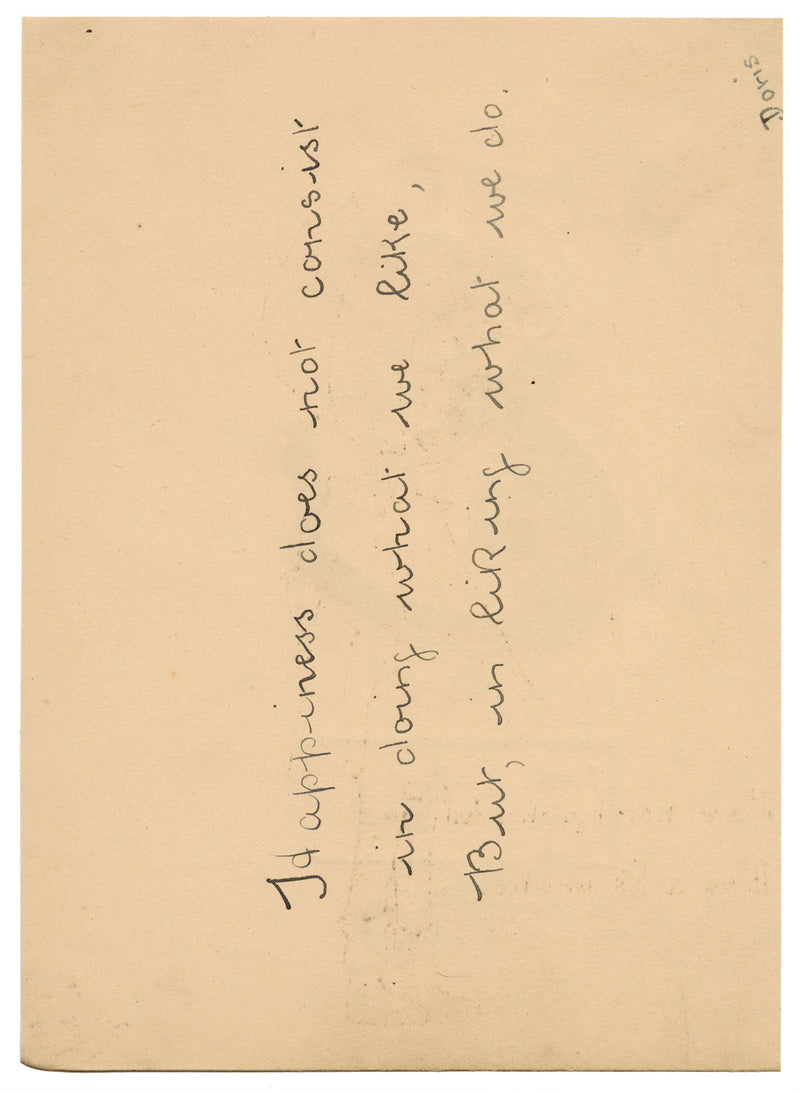 Happiness does not consist
in doing what we like,
But, in liking what we do.
Doris